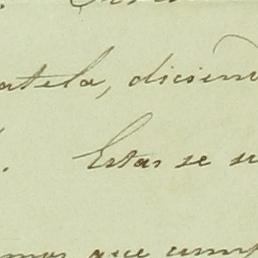 atela, diciem
Estas se su
mos que cump